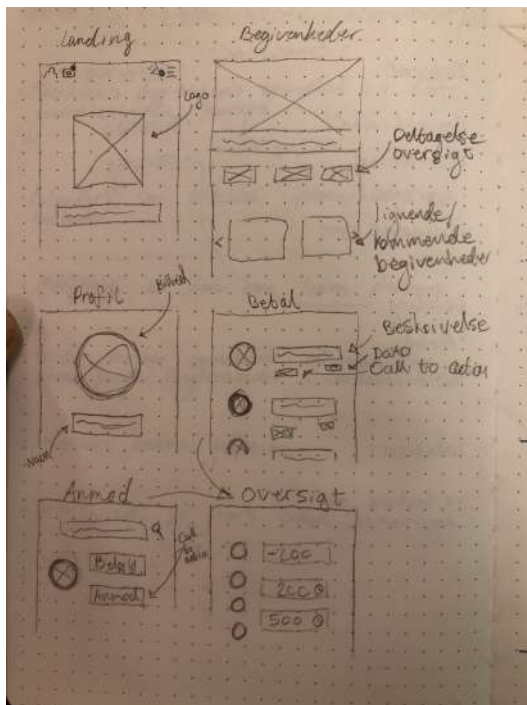 Landing
Begivenheder
Logo
Deltagelse
oversigt
lignende/
kommende
begivenheder
Profil
Billed
Navn
Betal
Beskrivelse
Dato
Call to action
Anmod
Call
to
action
Betal
Anmod
Oversigt
-200
200
500